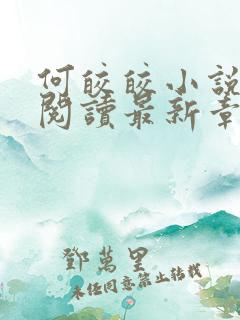 何皎皎小說
閱讀最新章
鄧萬里
未經同意禁止轉載